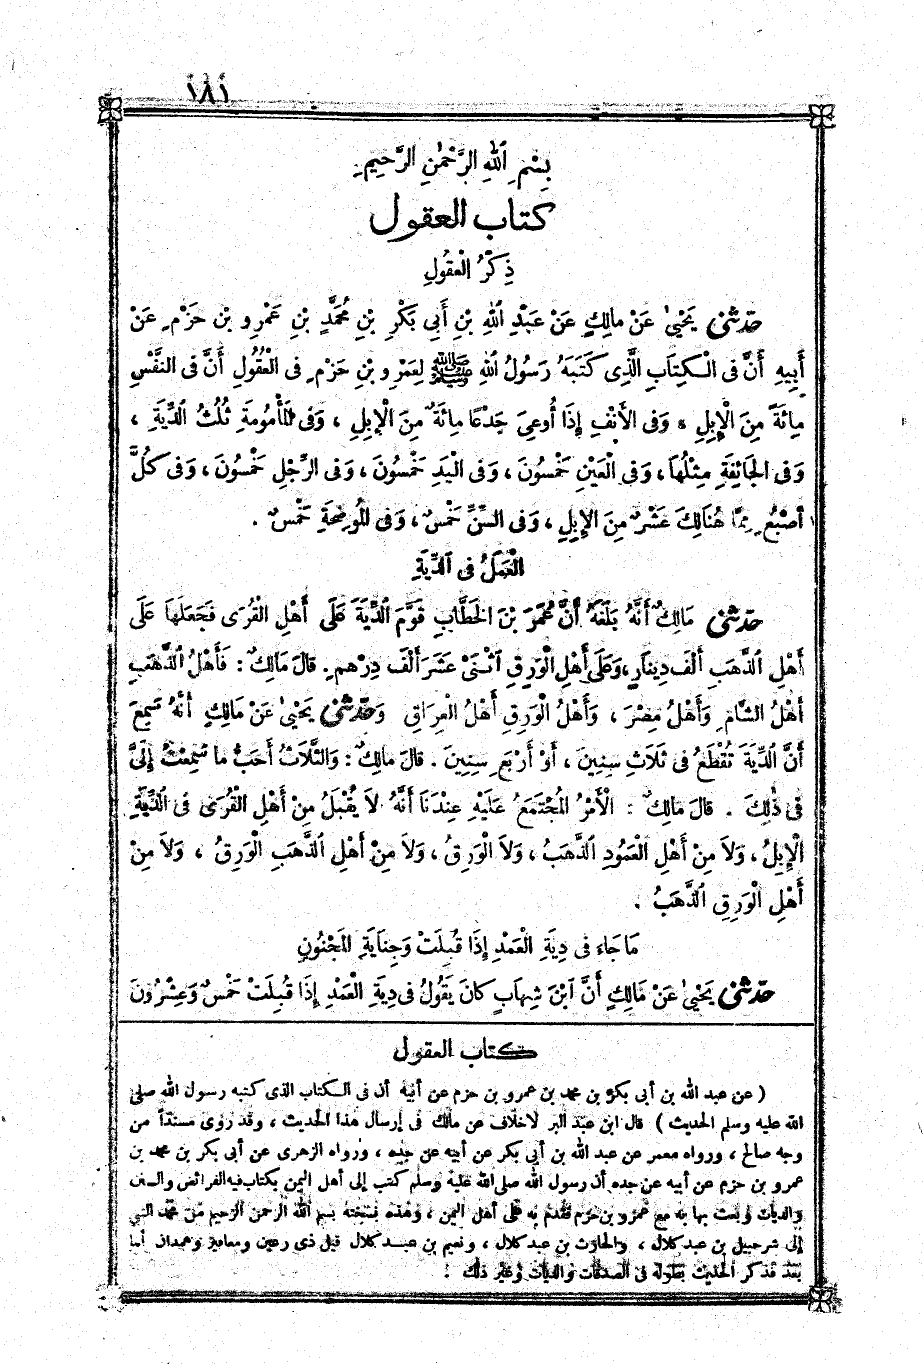 ١٨١
بِسْمِ اللهِ الرَّحْمٰنِ الرَّحِيمِ
كتاب العقول
ذِكْرُ الْعُقُولِ
حدّثنى يَحْيَىٰ عَنْ مالِكٍ عَنْ عَبْدِ اللهِ بْنِ أَبِى بَكْرِ بْنِ مُحَمَّدِ بْنِ عَمْرِو بْنِ حَزْمٍ عَنْ
أَبِيهِ أَنَّ فى الْكِتَابِ الَّذِى كَتَبَهُ رَسُولُ اللهِ ﷺ لِعَمْرِو بْنِ حَزْمٍ فى الْعُقُولِ أَنَّ فى النَّفْسِ
مِائَةً مِنَ الْإِبِلِ ، وَفى الأَنْفِ إِذَا أُوعِىَ جَدْعًا مِائَةٌ مِنَ الْإِبِلِ ، وَفى المَأْمُومَةِ ثُلُثُ الدِّيَةِ ،
وَفى الجَائِفَةِ مِثْلُهَا ، وَفى الْعَيْنِ خَمْسُونَ ، وَفى الْيَدِ خَمْسُونَ ، وَفى الرِّجْلِ خَمْسُونَ ، وَفى كُلِّ
أُصْبُعٍ مِمَّا هُنَالِكَ عَشْرٌ مِنَ الإِبِلِ ، وَفى السِّنِّ خَمْسٌ ، وَفى المُوضِحَةِ خَمْسٌ .
الْعَمَلُ فى الدِّيَةِ
حدّثنى مَالِكٌ أَنَّهُ بَلَغَهُ أَنَّ عُمَرَ بْنَ الخَطَّابِ قَوَّمَ الدِّيَةَ عَلَى أَهْلِ الْقُرَى فَجَعَلَهَا عَلَى
أَهْلِ الذَّهَبِ أَلْفَ دِينَارٍ ، وَعَلَى أَهْلِ الْوَرِقِ اثْنَىْ عَشَرَ أَلْفَ دِرْهَمٍ . قالَ مَالِكٌ : فَأَهْلُ الذَّهَبِ
أَهْلُ الشَّامِ وَأَهْلُ مِصْرَ ، وَأَهْلُ الْوَرِقِ أَهْلُ الْعِرَاقِ وَحَدّثنى يَحْيَىٰ عَنْ مَالِكٍ أَنَّهُ سَمِعَ
أَنَّ الدِّيَةَ تُقْطَعُ فى ثَلَاثِ سِنِينَ ، أَوْ أَرْبَعِ سِنِينَ . قالَ مالِكٌ : وَالثَّلَاثُ أَحَبُّ ما سَمِعْتُ إِلَىَّ
فى ذٰلِكَ . قالَ مَالِكٌ : الْأَمْرُ الْمُجْتَمَعُ عَلَيْهِ عِنْدَنَا أَنَّهُ لَا يُقْبَلُ مِنْ أَهْلِ الْقُرَى فى الدِّيَةِ
الْإِبِلُ ، وَلَا مِنْ أَهْلِ الْعَمُودِ الذَّهَبُ ، وَلَا الْوَرِقُ ، وَلَا مِنْ أَهْلِ الذَّهَبِ الْوَرِقُ ، وَلَا مِنْ
أَهْلِ الْوَرِقِ الذَّهَبُ .
مَاجَاء فى دِيَةِ الْعَمْدِ إِذَا قُبِلَتْ وَجِنَايَةِ الْمَجْنُونِ
حدّثنى يَحْيَىٰ عَنْ مَالِكٍ أَنَّ ابْنَ شِهَابٍ كانَ يَقُولُ فى دِيَةِ الْعَمْدِ إِذَا قُبِلَتْ خَمْسٌ وَعِشْرُونَ
كتاب العقول
( عن عبد الله بن أبى بكر بن محمد بن عمرو بن حزم عن أبيه أن فى الكتاب الذى كتبه رسول الله صلى
الله عليه وسلم الحديث ) قال ابن عبد البر لاخلاف عن مالك فى إرسال هذا الحديث ، وقد روى مسنداً من
وجه صالح ، ورواه معمر عن عبد الله بن أبى بكر عن أبيه عن جده ، ورواه الزهرى عن أبى بكر بن محمد بن
عمرو بن حزم عن أبيه عن جده أن رسول الله صلى الله عليه وسلم كتب إلى أهل اليمن بكتاب فيه الفرائض والسنن
والديات وبعث بها به مع عمرو بن حزم فقدم به على أهل اليمن ، وهذه نسخته بسم الله الرحمن الرحيم من محمد النبى
إلى شرحبيل بن عبد كلال ، والحارث بن عبد كلال ، ونعيم بن عبد كلال قيل ذى رعين ومعافر وهمدان أما
بعد فذكر الحديث بطوله فى الصدقات والديات وغير ذلك !